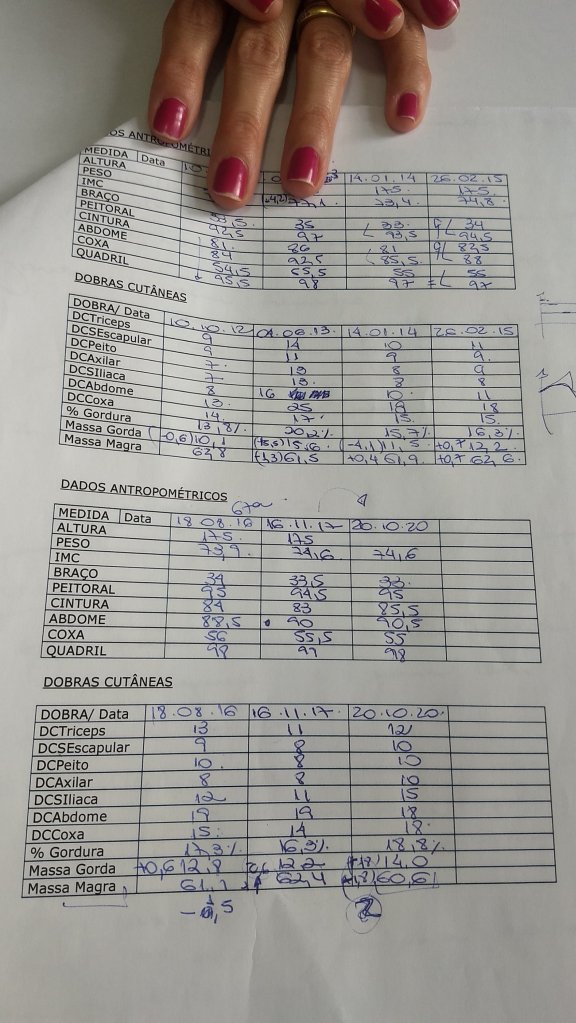 OS ANTROPOMÉTRI
MEDIDA Data 10. 14.01.14 26.02.15
ALTURA 175. 175
PESO 77,1 73,4. 74,8.
IMC
BRAÇO 33,5. 35 33. 34
PEITORAL 92,5 97 93,5 94,5
CINTURA 81. 86 81 82,5
ABDOME 84 92,5 85,5. 88
COXA 54,5 55,5 55 55
QUADRIL 95,5 98 97 97
DOBRAS CUTÂNEAS
DOBRA/ Data 10.10.12 04.06.13. 14.01.14 26.02.15
DCTriceps 9 14 10 11
DCSEscapular 9 11 9 9.
DCPeito 7. 13 8 9
DCAxilar 7. 13. 8 8
DCSIliaca 8 16 10. 11
DCAbdome 13. 25 18 18
DCCoxa 14. 17. 15. 15.
% Gordura 13,8% 20,2% 15,7% 16,3%
Massa Gorda (-0,6)10,1 (+5,5)15,6 (-4,1)11,5 +0,7 12,2
Massa Magra 62,8 (-1,3)61,5 +0,4 61,9 +0,7 62,6
DADOS ANTROPOMÉTRICOS
MEDIDA Data 18.08.16 16.11.17 20.10.20
ALTURA 175. 175
PESO 73,9. 74,6 74,6
IMC
BRAÇO 34 33,5 33.
PEITORAL 95 94,5 95
CINTURA 84 83 85,5
ABDOME 88,5 90 90,5
COXA 56 55,5 55
QUADRIL 98 97 98
DOBRAS CUTÂNEAS
DOBRA/ Data 18.08.16 16.11.17. 20.10.20.
DCTriceps 13 11 12
DCSEscapular 9 8 10
DCPeito 10. 8 10
DCAxilar 8 8 10
DCSIliaca 12 11 15
DCAbdome 19 19 18
DCCoxa 15. 14 18.
% Gordura 17,3% 16,3% 18,8%
Massa Gorda +0,6 12,8 12,2 (+1,8) 14,0
Massa Magra 61,1 62,4 (-1,8) 60,6
2